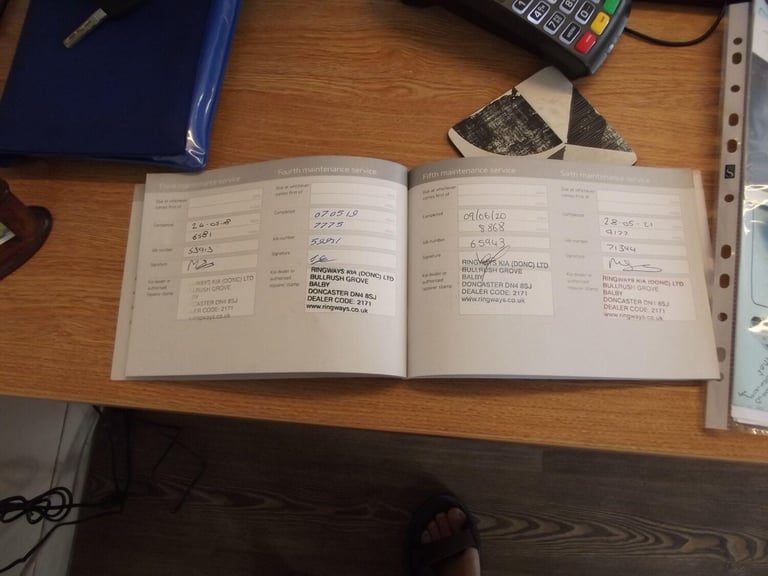 Third maintenance service
Due at whichever
comes first of
Completed
24-05-18
6581
Job number
53913
Signature
Kia dealer or
authorised
repairer stamp
WAYS KIA (DONC) LTD
RUSH GROVE
DONCASTER DN4 8SJ
ER CODE: 2171
ringways.co.uk
Fourth maintenance service
Due at whichever
comes first of
Completed
070519
7775
Job number
Signature
Kia dealer or
authorised
repairer stamp
RINGWAYS KIA (DONC) LTD
BULLRUSH GROVE
BALBY
DONCASTER DN4 8SJ
DEALER CODE: 2171
www.ringways.co.uk
Fifth maintenance service
Due at whichever
comes first of
Completed
09/06/20
8868
Job number
65943
Signature
Kia dealer or
authorised
repairer stamp
RINGWAYS KIA (DONC) LTD
BULLRUSH GROVE
BALBY
DONCASTER DN4 8SJ
DEALER CODE: 2171
www.ringways.co.uk
Sixth maintenance service
Due at whichever
comes first of
Completed
28-05-21
9177
Job number
71344
Signature
Kia dealer or
authorised
repairer stamp
RINGWAYS KIA (DONC) LTD
BULLRUSH GROVE
BALBY
DONCASTER DN4 8SJ
DEALER CODE: 2171
www.ringways.co.uk